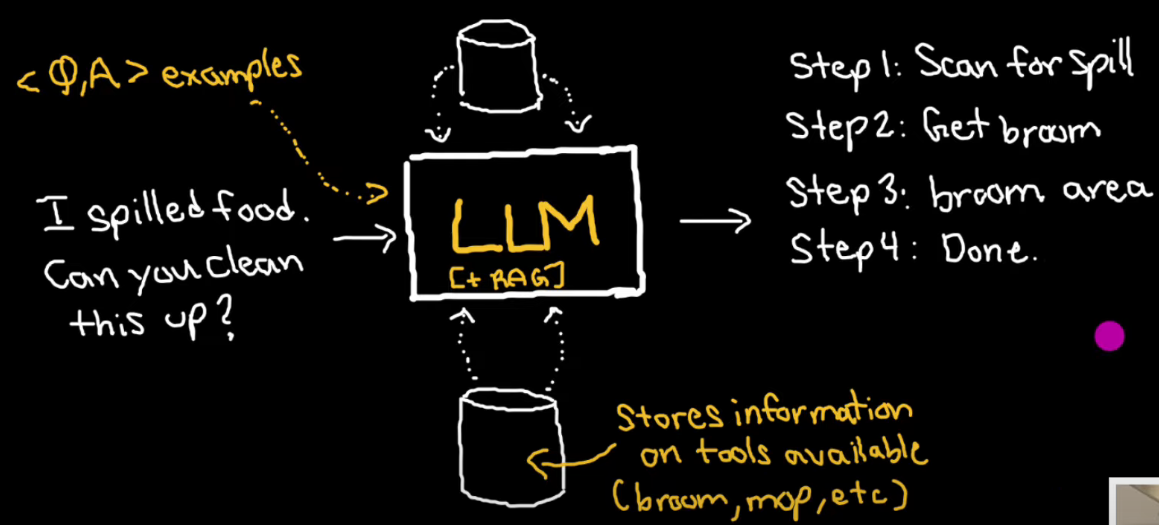 <Q,A> examples
I spilled food.
Can you clean
this up?
LLM
[+ RAG]
Step 1: Scan for spill
Step 2: Get broom
Step 3: broom area
Step 4: Done.
Stores information
on tools available
(broom, mop, etc)